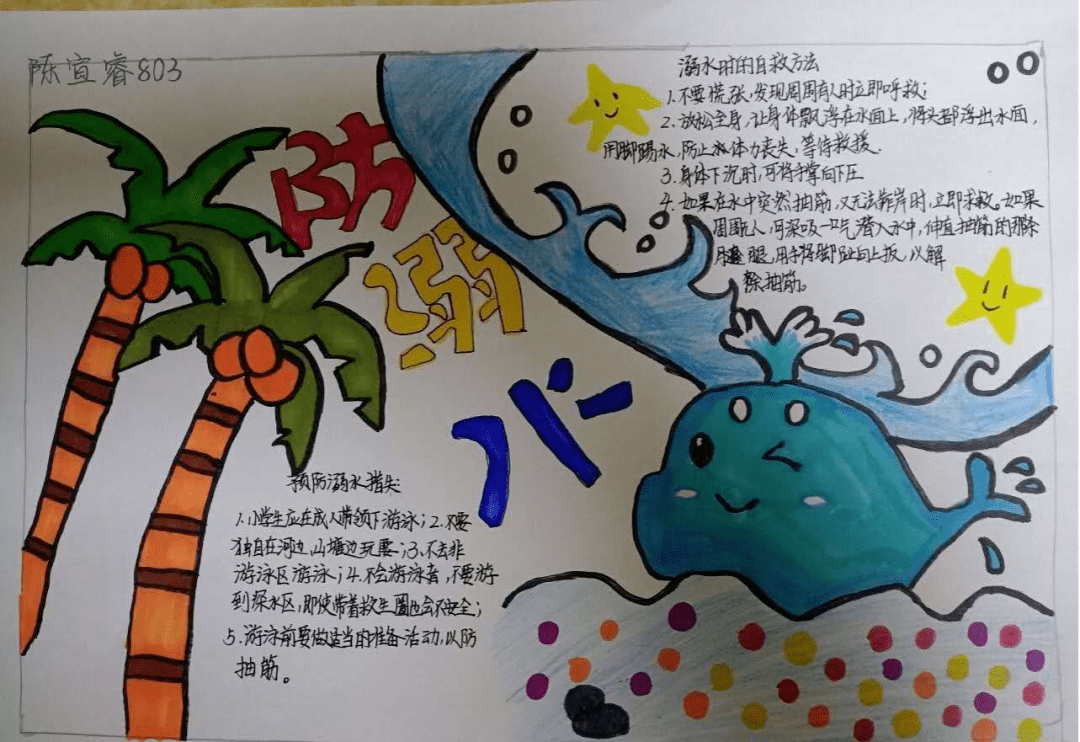 陈宣睿803
防
溺
水
溺水时的自救方法
1.不要慌张,发现周围有人时立即呼救;
2.放松全身,让身体飘浮在水面上,将头部浮出水面,
用脚踢水,防止体力丧失,等待救援.
3.身体下沉时,可将手掌向下压
4.如果在水中突然抽筋,又无法靠岸时,立即求救。如果
周围无人,可深吸一口气潜入水中,伸直抽筋的那条
腿,用手将脚趾向上扳,以解
除抽筋。
预防溺水措失
1.小学生应在成人带领下游泳;2.不要
独自在河边,山塘边玩耍;3.不去非
游泳区游泳;4.不会游泳者,不要游
到深水区,即使带着救生圈也会不安全;
5.游泳前要做适当的准备活动,以防
抽筋。